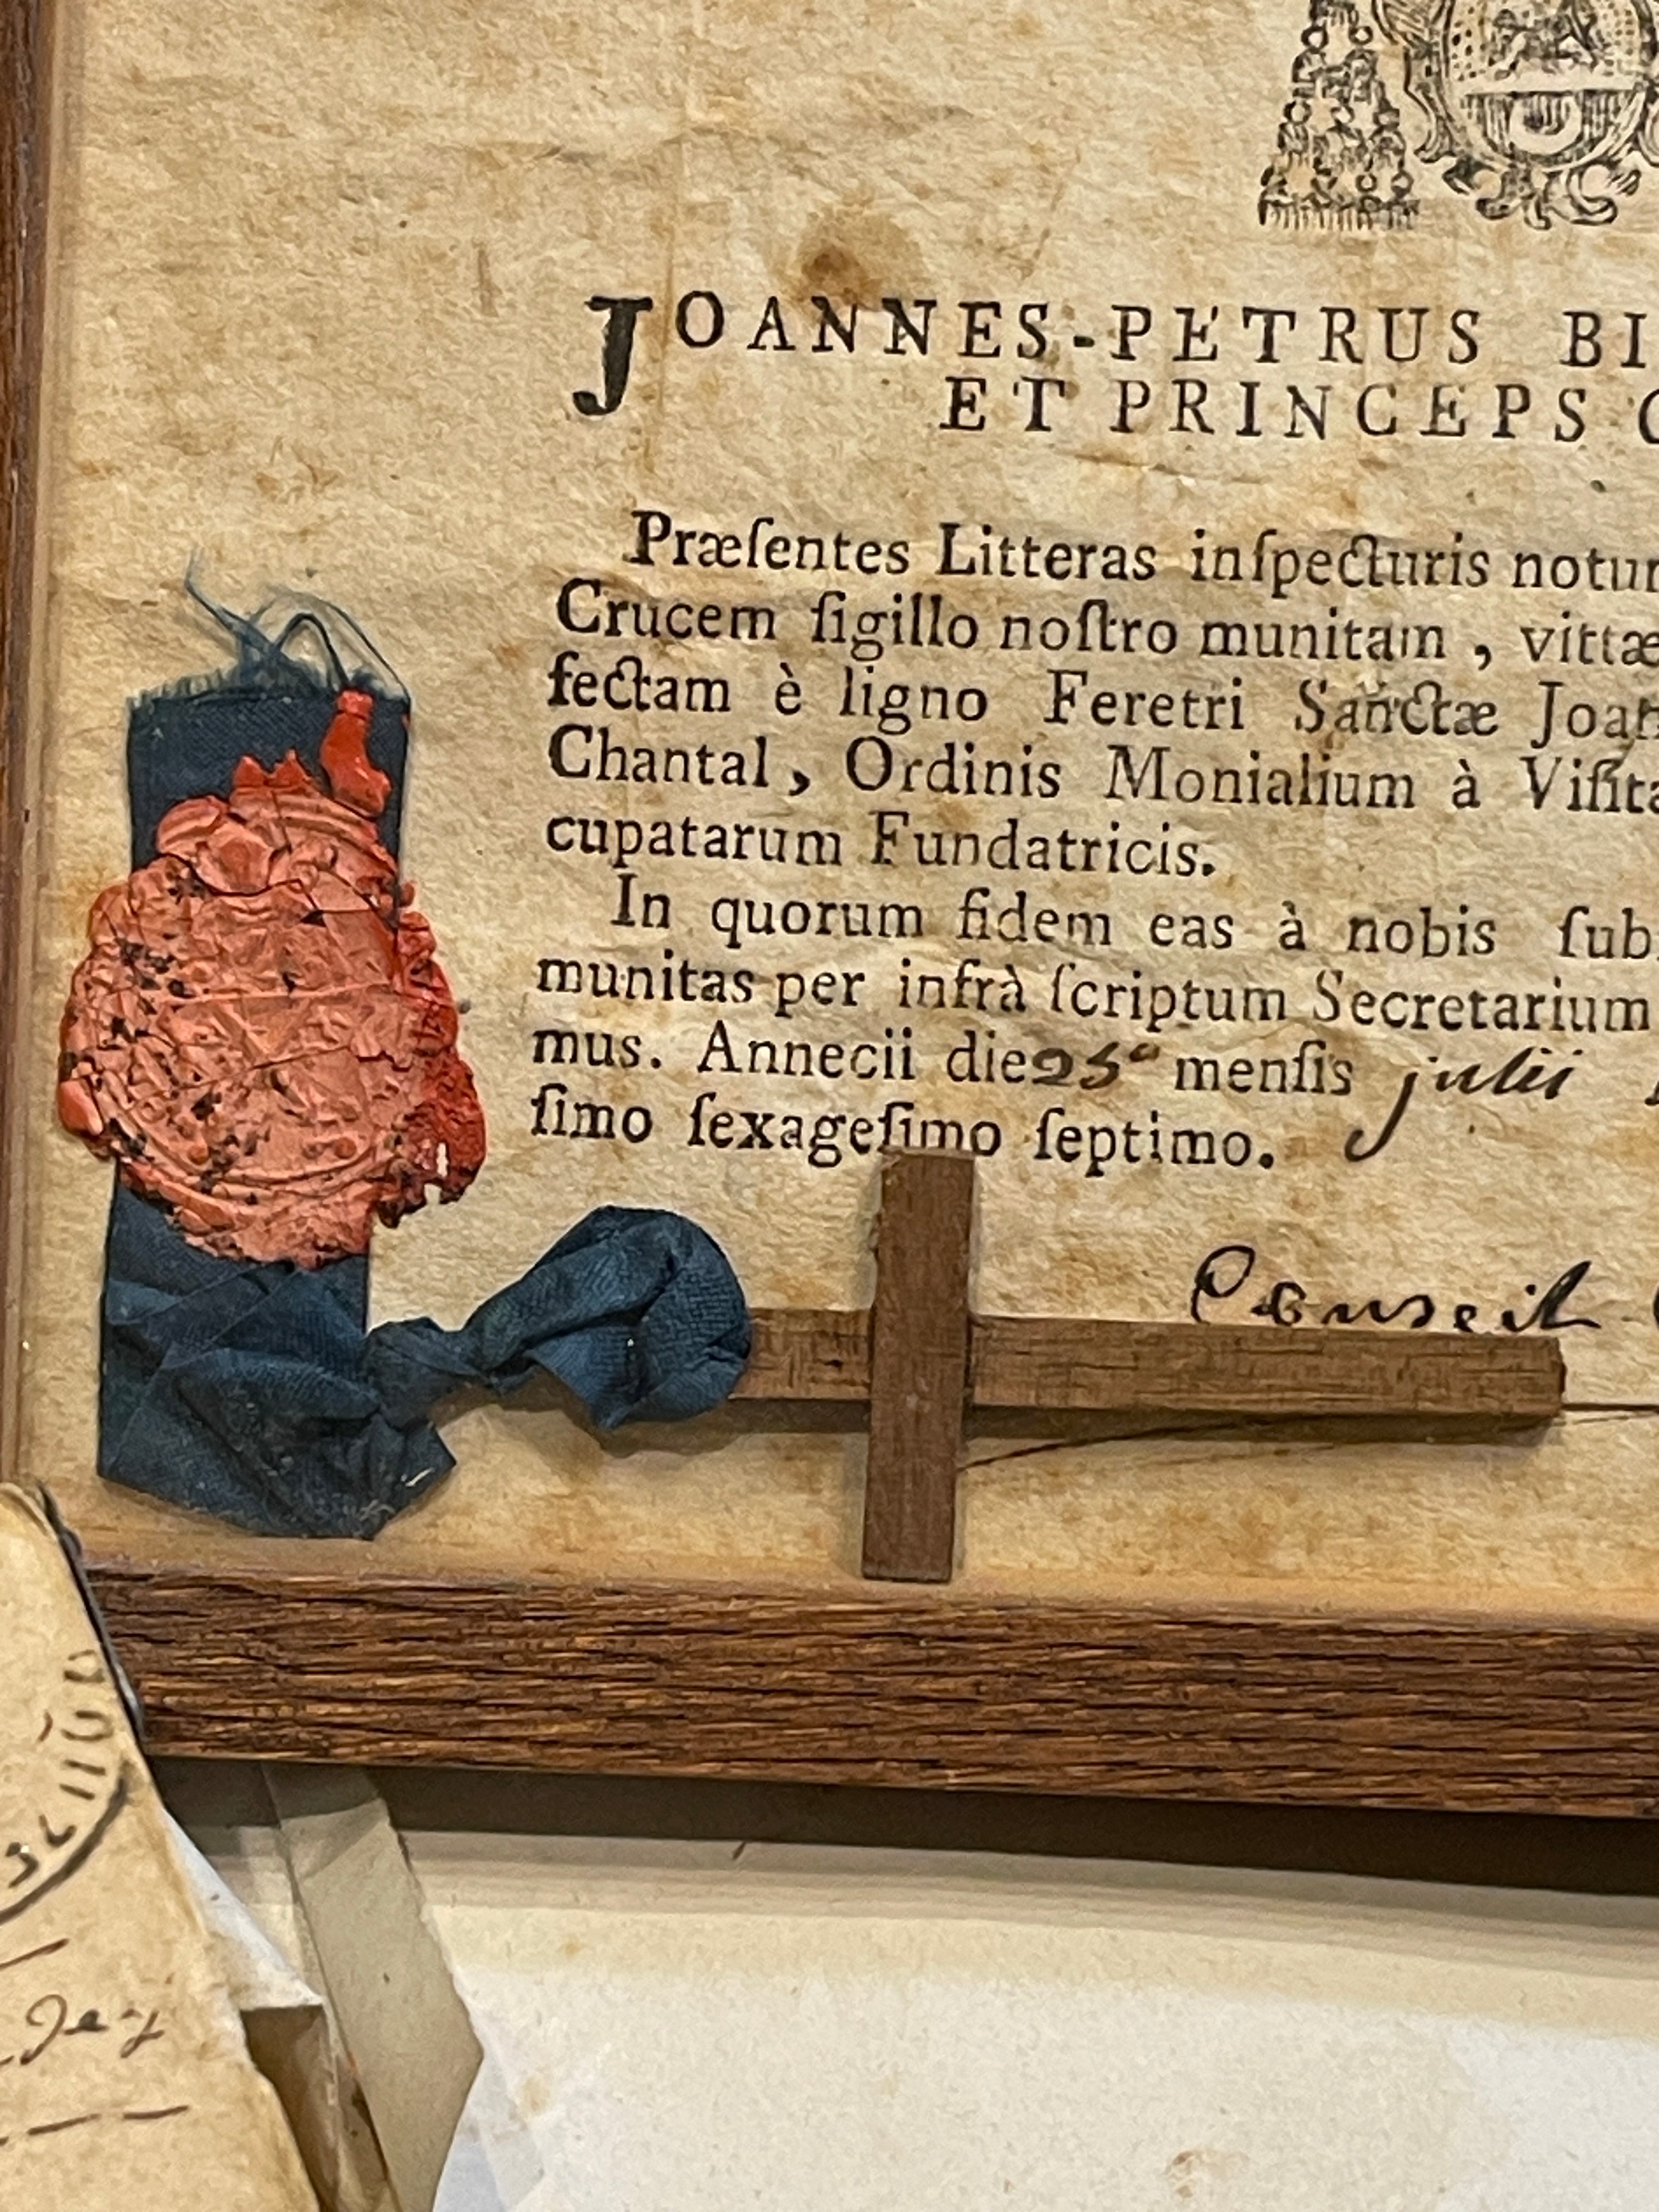 JOANNES-PETRUS BI
ET PRINCEPS
Præſentes Litteras inſpecturis notum
Crucem ſigillo noſtro munitam , vittæ
fectam è ligno Feretri Sanctæ Joan
Chantal, Ordinis Monialium à Viſita
cupatarum Fundatricis.
In quorum fidem eas à nobis ſub
munitas per infrà ſcriptum Secretarium
mus. Annecii die 25ª menſis julii
ſimo ſexageſimo ſeptimo.
Conseil